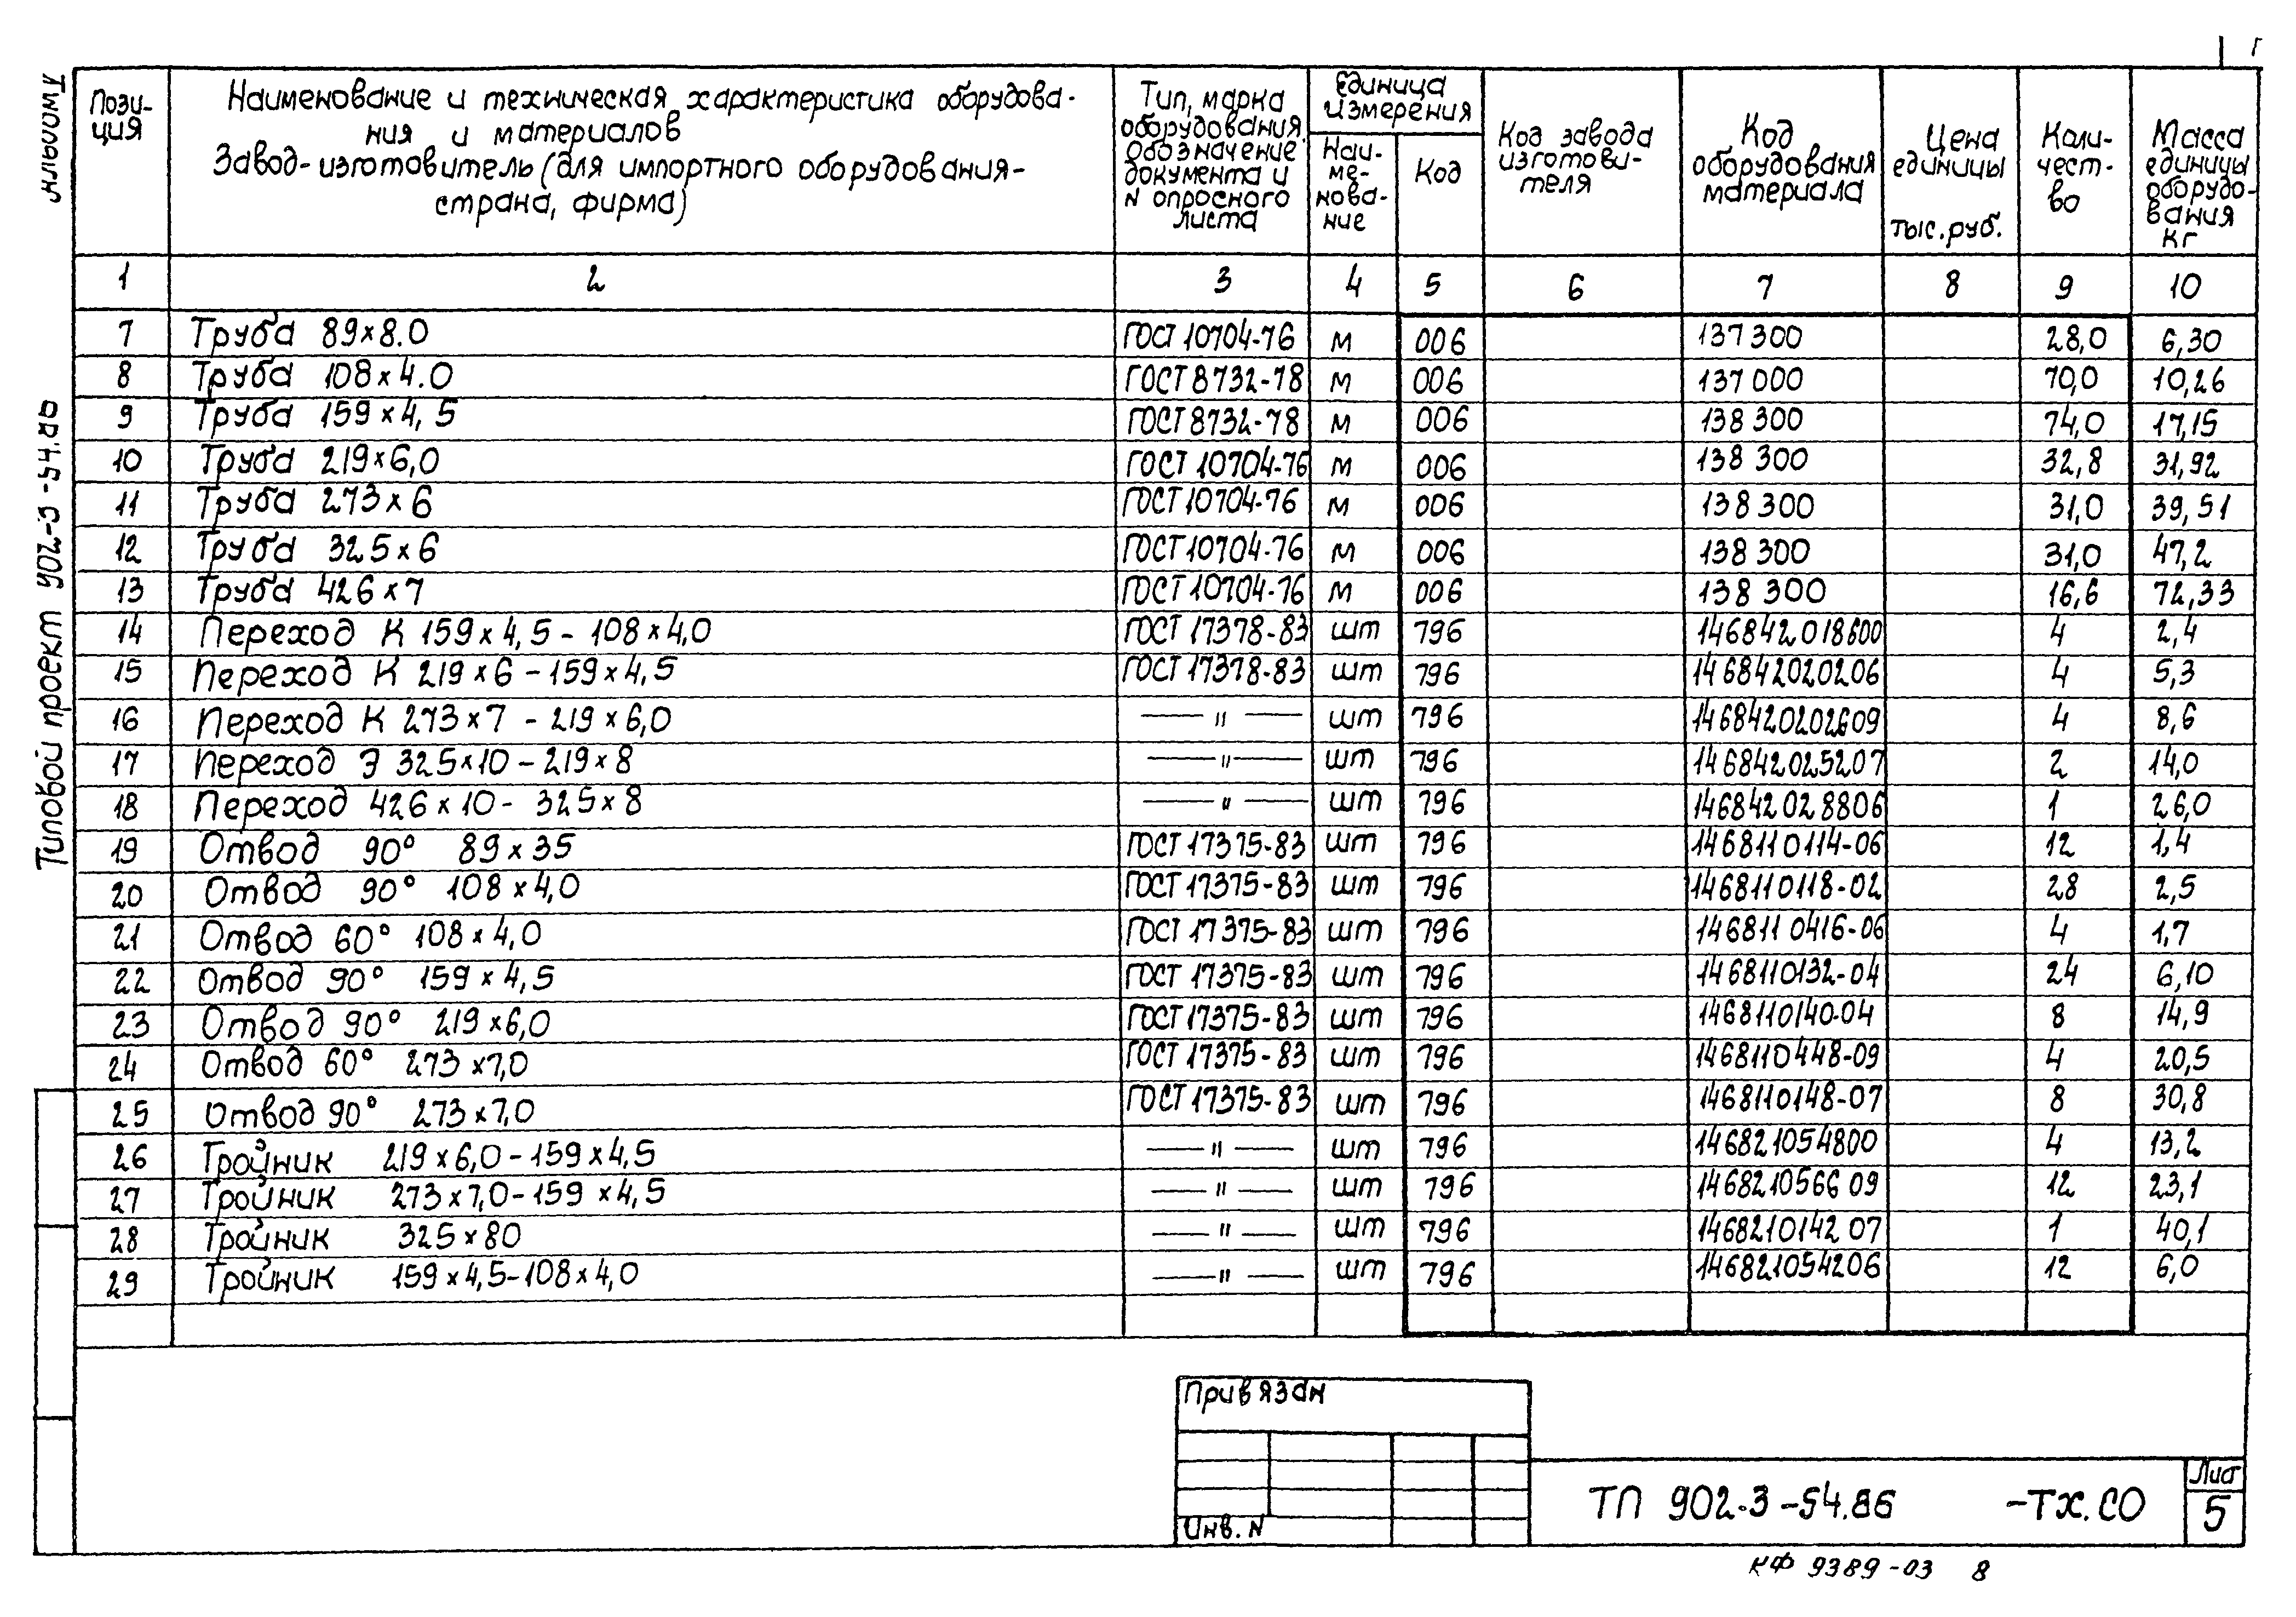 Альбом V
Типовой проект 902-3-54.86
Пози-
ция
Наименование и техническая характеристика оборудова-
ния и материалов
Завод-изготовитель (для импортного оборудования-
страна, фирма)
Тип, марка
оборудования.
Обозначение
документа и
N опросного
листа
Единица
измерения
Наи-
ме-
нова-
ние
Код
Код завода
изготови-
теля
Код
оборудования
материала
Цена
единицы
тыс.руб.
Коли-
чест-
во
Масса
единицы
оборудо-
вания
кг
1 2 3 4 5 6 7 8 9 10
7 Труба 89х8.0 ГОСТ 10704-76 м 006 137300 28,0 6,30
8 Труба 108х4.0 ГОСТ 8732-78 м 006 137000 70,0 10,26
9 Труба 159х4,5 ГОСТ 8732-78 м 006 138300 74,0 17,15
10 Труба 219х6,0 ГОСТ 10704-76 м 006 138300 32,8 31,92
11 Труба 273х6 ГОСТ 10704-76 м 006 138300 31,0 39,51
12 Труба 325х6 ГОСТ 10704-76 м 006 138300 31,0 47,2
13 Труба 426х7 ГОСТ 10704-76 м 006 138300 16,6 72,33
14 Переход К 159х4,5-108х4,0 ГОСТ 17378-83 шт 796 146842018600 4 2,4
15 Переход К 219х6-159х4,5 ГОСТ 17378-83 шт 796 146842020206 4 5,3
16 Переход К 273х7-219х6,0 —"— шт 796 1468420202609 4 8,6
17 Переход Э 325х10-219х8 —"— шт 796 146842025207 2 14,0
18 Переход 426х10-325х8 —"— шт 796 146842028806 1 26,0
19 Отвод 90° 89х35 ГОСТ 17375-83 шт 796 1468110114-06 12 1,4
20 Отвод 90° 108х4,0 ГОСТ 17375-83 шт 796 1468110118-02 28 2,5
21 Отвод 60° 108х4,0 ГОСТ 17375-83 шт 796 1468110416-06 4 1,7
22 Отвод 90° 159х4,5 ГОСТ 17375-83 шт 796 1468110132-04 24 6,10
23 Отвод 90° 219х6,0 ГОСТ 17375-83 шт 796 1468110140-04 8 14,9
24 Отвод 60° 273х7,0 ГОСТ 17375-83 шт 796 1468110448-09 4 20,5
25 Отвод 90° 273х7,0 ГОСТ 17375-83 шт 796 1468110148-07 8 30,8
26 Тройник 219х6,0-159х4,5 —"— шт 796 146821054800 4 13,2
27 Тройник 273х7,0-159х4,5 —"— шт 796 146821056609 12 23,1
28 Тройник 325х80 —"— шт 796 146821014207 1 40,1
29 Тройник 159х4,5-108х4,0 —"— шт 796 146821054206 12 6,0
Привязан
Инв. N
ТП 902-3-54.86 -ТХ.СО
Лист
5
КФ 9389-03 8